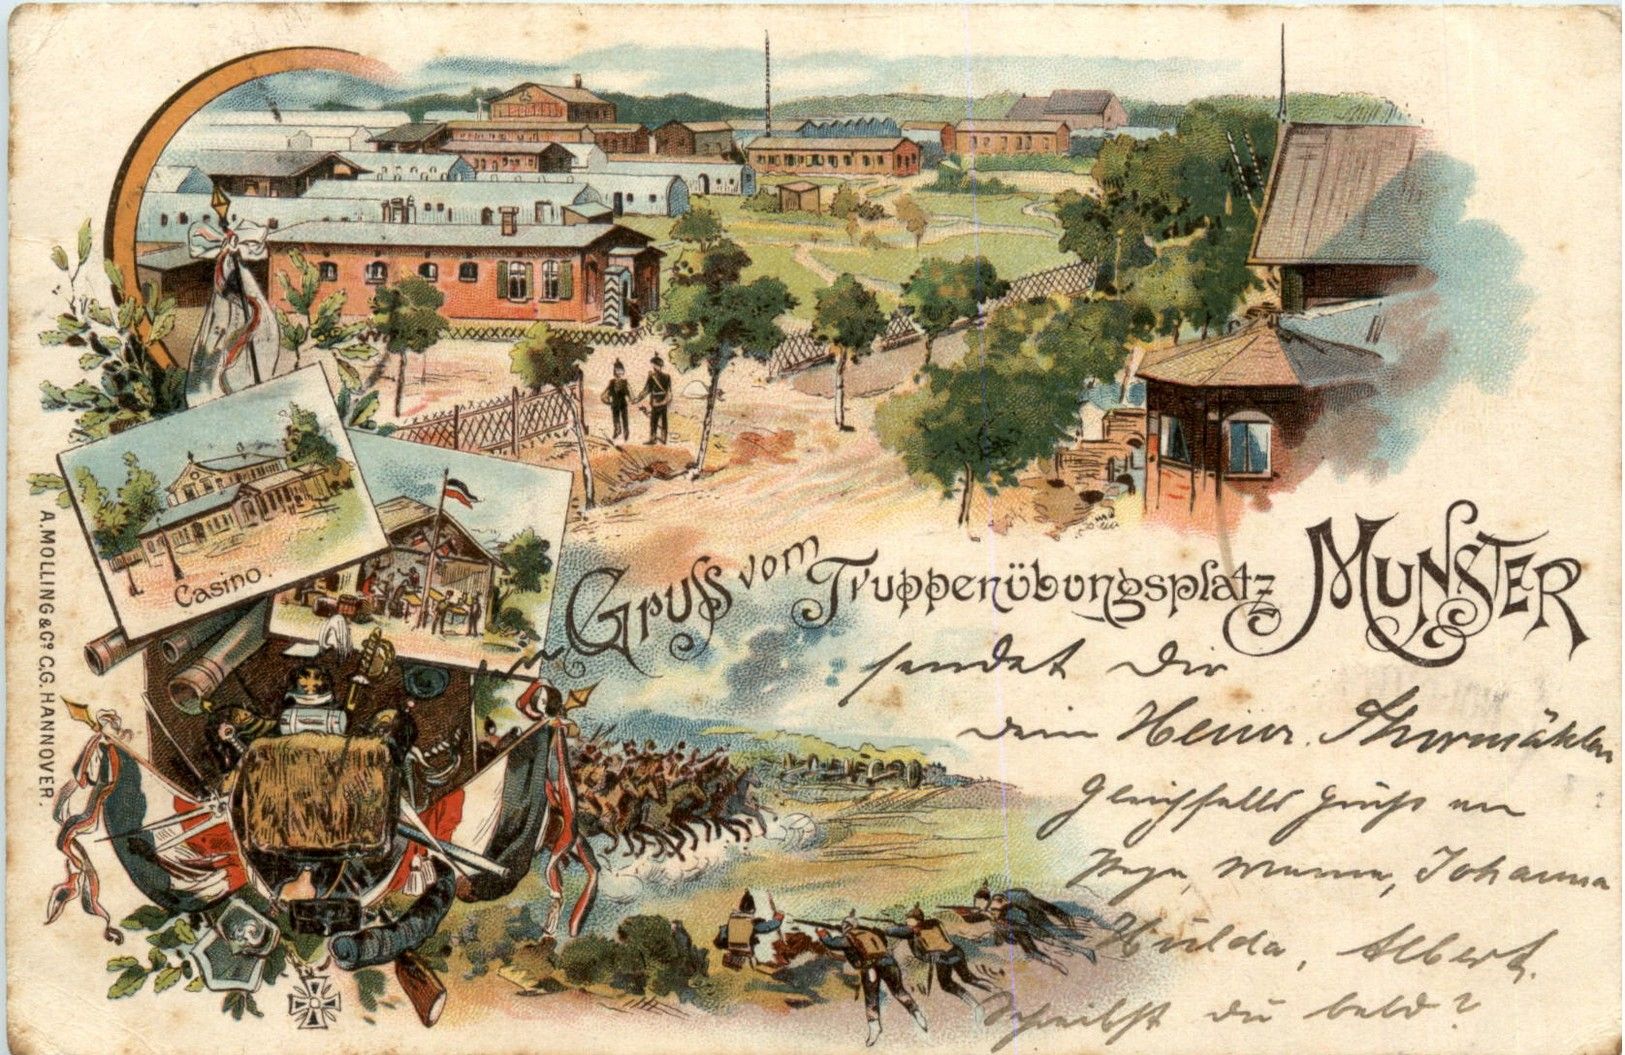 Casino.
A. MOLLING & Co. C.G. HANNOVER.
Gruss vom Truppenübungsplatz MUNSTER
sendet Dir
dein Heinr.
Gleichfalls Gruß an
Papa, Mama, Johanna
Hulda, Albert.
Schreibst du bald?